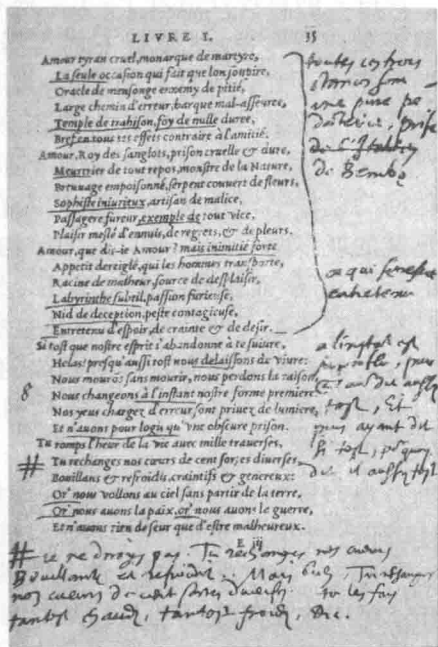 LIVRE I. 35
Amour tyran cruel, monarque de martyre,
La seule occasion qui fait que lon souspire,
Oracle de mensonge ennemy de pitié,
Large chemin d'erreur, barque mal-asseuree,
Temple de trahison, foy de nulle duree,
Bref en tous tes effets contraire à l'amitié.
Amour, Roy des sanglots, prison cruelle & dure,
Meurtrier de tout repos, monstre de la Nature,
Breuuage empoisonné, serpent couuert de fleurs,
Sophiste iniurieux, artisan de malice,
Passagere fureur, exemple de tout vice,
Plaisir meslé d'ennuis, de regrets, & de pleurs.
Amour, que dis-ie Amour? mais inimitié forte
Appetit dereiglé, qui les hommes transporte,
Racine de malheur, source de desplaisir,
Labyrinthe subtil, passion furieuse,
Nid de deception, peste contagieuse,
Entretenu d'espoir, de crainte & de desir.
Si tost que nostre esprit s'abandonne à te suiure,
Helas! presqu'aussi tost nous delaissons de viure:
Nous mourõs sans mourir, nous perdons la raison,
Nous changeons à l'instant nostre forme premiere
Nos yeux chargez d'erreur sont priuez de lumiere,
Et n'auons pour logis qu'vne obscure prison.
Tu romps l'heur de la vie auec mille trauerses,
# Tu rechanges nos cœurs de cent sortes diuerses,
Bouillans & refroidis, craintifs & genereux:
Or' nous vollons au ciel sans partir de la terre,
Or' nous auons la paix, or' nous auons la guerre,
Et n'auons rien de seur que d'estre malheureux.
E iij
toutes ces trois
stances sont
une pure
prise
de
de Bembo
ce qui
entretenu
a l'instant est
Et
puis ayant dit
si tost,
dit aussi tost
# ie ne dirois pas, Tu rechanges nos cœurs
Bouillants et refroidis. Mais bien, Tu rechanges
nos cœurs de cent sortes diuerses. tu les fais
tantost chauds, tantost froids, &c.